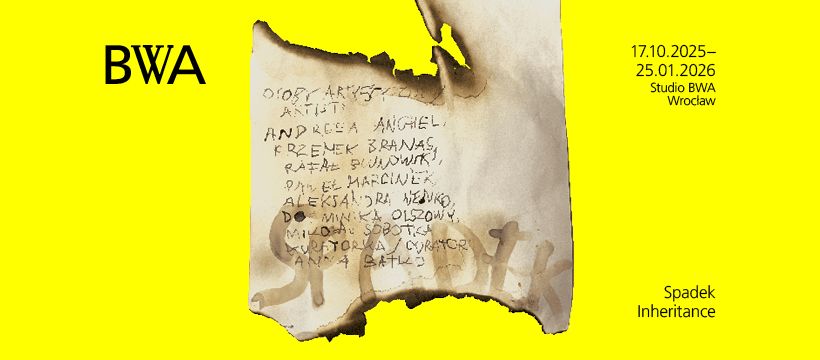 BWA
17.10.2025–
25.01.2026
Studio BWA
Wrocław
OSOBY ARTYSTYCZNE
ARTISTS
ANDREEA ANGHEL,
KRZEMEK BRANAS,
RAFAŁ BUJNOWSKI,
PAWEŁ MARCINEK,
ALEKSANDRA NENKO,
DOMINIKA OLSZOWY,
MIKOŁAJ SOBOTKA
KURATORKA / CURATOR
ANNA BATKO
SPADEK
Spadek
Inheritance